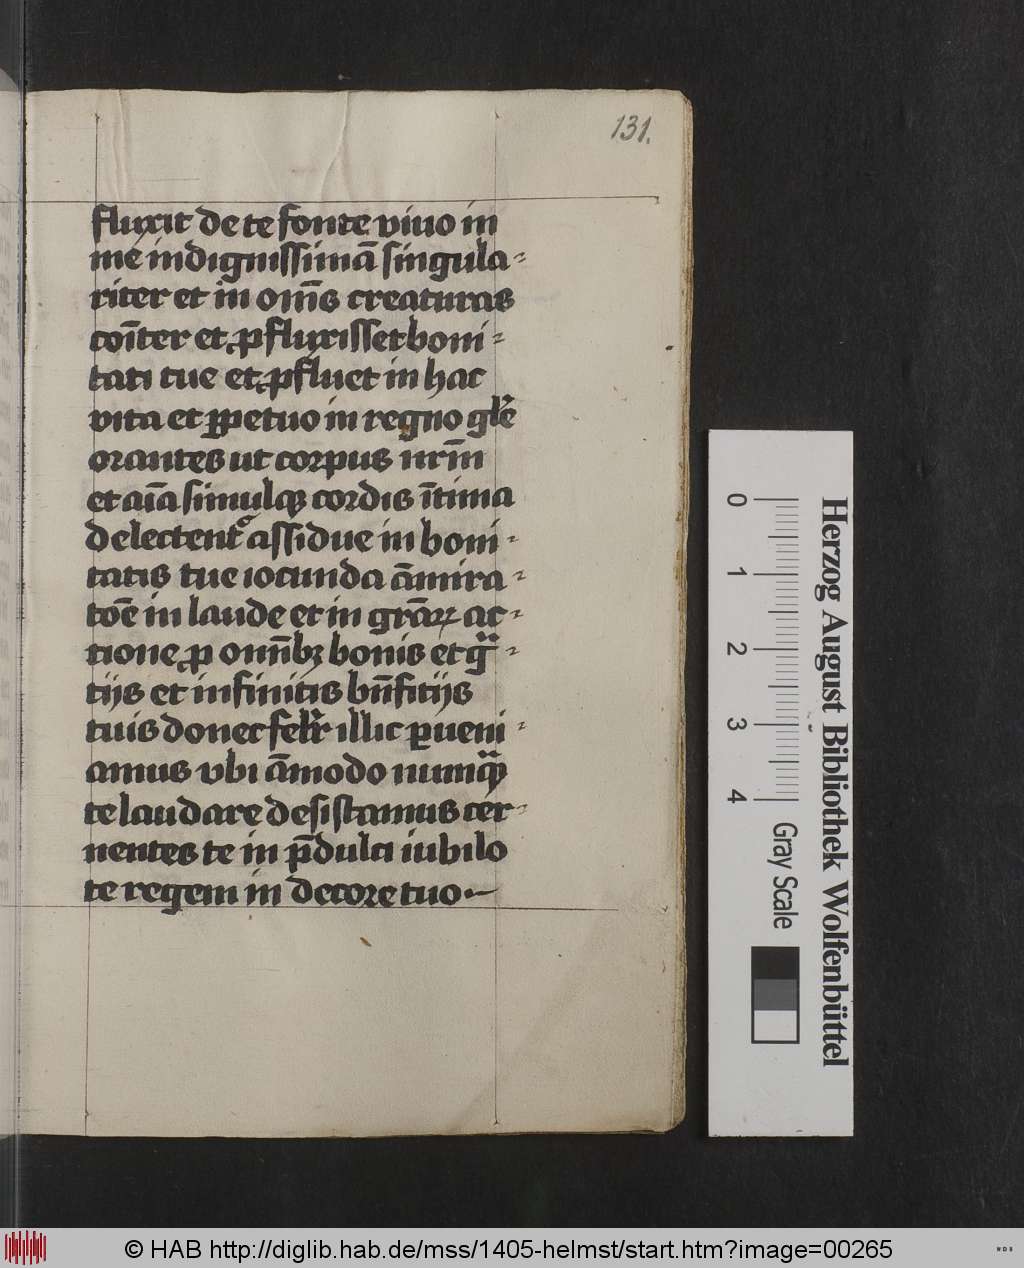 131.
fluxit de te fonte viuo in
me indignissimā singula⸗
riter et in om̄s creaturas
cōiter et ꝓfluxisset boni⸗
tati tue et ꝓfluet in hac
vita et ꝑpetuo in regno gl'e
orantes ut corpus nr̄m
et aīa simulqꝫ cordis ītima
delectent᷑ assidue in boni⸗
tatis tue iocunda āmira⸗
tōe in laude et in grāꝝ ac⸗
tione ꝓ omībꝫ bonis et gͣ⸗
tijs et infinitis bn̄fitijs
tuis donec felr̄ illic ꝑueni⸗
amus vbi āmodo numqͣꝫ
te laudare desistamus cer⸗
nentes te in p̄dulci iubilo
te regem in decore tuo
Herzog August Bibliothek Wolfenbüttel
0 1 2 3 4 Gray Scale
© HAB http://diglib.hab.de/mss/1405-helmst/start.htm?image=00265